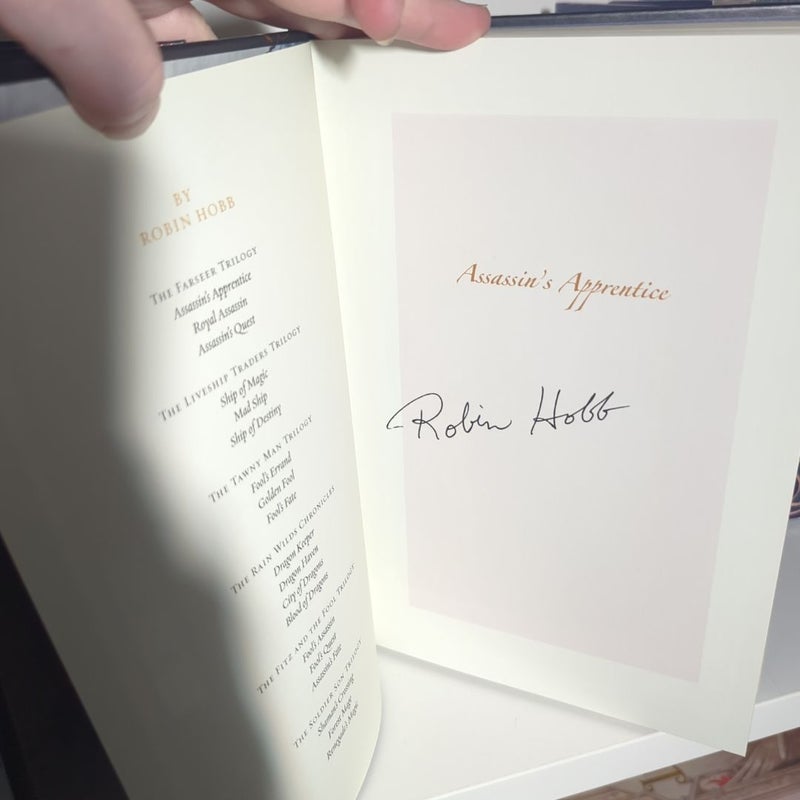 BY
ROBIN HOBB
THE FARSEER TRILOGY
Assassin's Apprentice
Royal Assassin
Assassin's Quest
THE LIVESHIP TRADERS TRILOGY
Ship of Magic
Mad Ship
Ship of Destiny
THE TAWNY MAN TRILOGY
Fool's Errand
Golden Fool
Fool's Fate
THE RAIN WILDS CHRONICLES
Dragon Keeper
Dragon Haven
City of Dragons
Blood of Dragons
THE FITZ AND THE FOOL TRILOGY
Fool's Assassin
Fool's Quest
Assassin's Fate
THE SOLDIER SON TRILOGY
Shaman's Crossing
Forest Mage
Renegade's Magic
Assassin's Apprentice
Robin Hobb